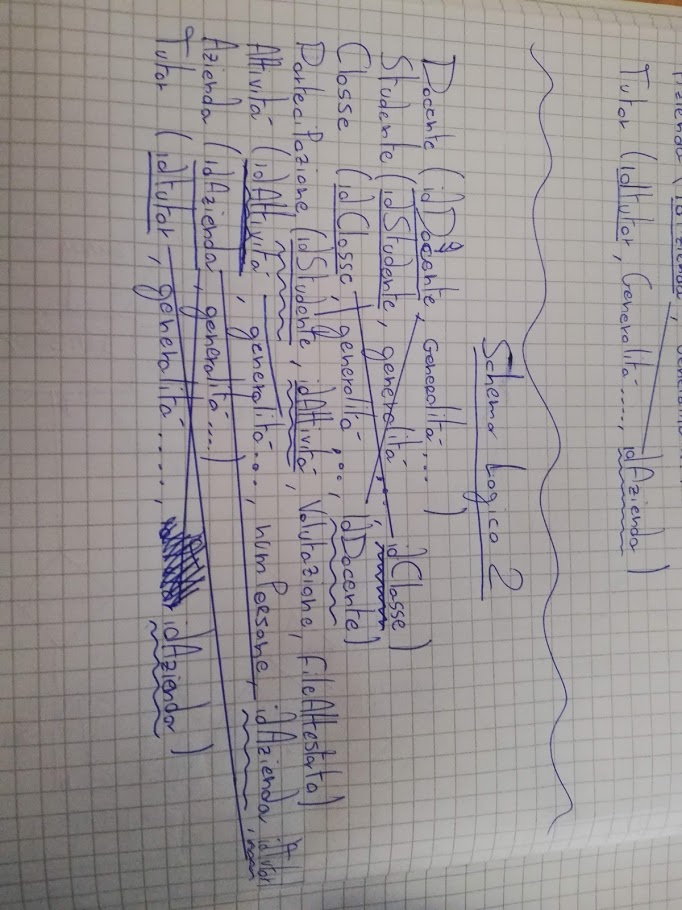 Azienda (idAzienda, Generalità
Tutor (idTutor, Generalità...., idAzienda)
Schema Logico 2
Docente (idDocente, Generalità....)
Studente (idStudente, generalità...., idClasse)
Classe (idClasse, generalità...., idDocente)
Partecipazione (idStudente, idAttività, Valutazione, fileAttestato)
Attività (idAttività, generalità...., numPersone, idAzienda, idTutor
Azienda (idAzienda, generalità....)
Tutor (idTutor, generalità....., idAzienda)